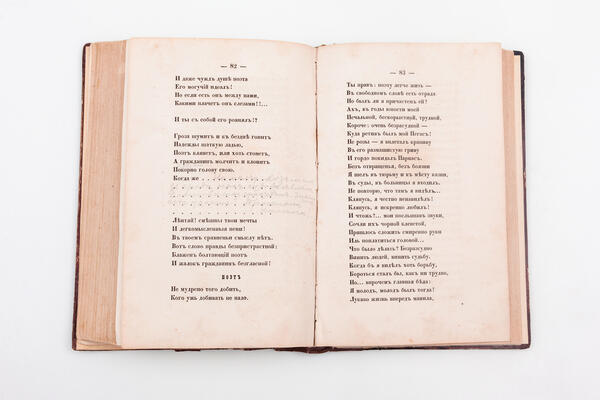 — 82 —
И даже чуждъ душѣ поэта
Его могучій идеалъ!
Но если есть онъ между нами,
Какими плачетъ онъ слезами!!...
И ты съ собой его ровнялъ!?
Гроза шумитъ и къ безднѣ гонитъ
Надежды шаткую ладью,
Поэтъ клянетъ, или хоть стонетъ,
А гражданинъ молчитъ и клонитъ
Покорно голову свою.
Когда же . . . . . . . . . .
. . . . . . . . . . . . .
. . . . . . . . . . . . .
. . . . . . . . . . . . .
Ликуй! смѣшны твои мечты
И легкомысленныя пени!
Въ твоемъ сравненьи смыслу нѣтъ.
Вотъ слово правды безпристрастной:
Блаженъ болтающій поэтъ
И жалокъ гражданинъ безгласной!
ПОЭТЪ
Не мудрено того добить,
Кого ужь добивать не надо.
— 83 —
Ты правъ: поэту легче жить —
Въ свободномъ словѣ есть отрада.
Но былъ ли я причастенъ ей?
Ахъ, въ годы юности моей
Печальной, безкорыстной, трудной,
Короче: очень безразсудной —
Куда ретивъ былъ мой Пегасъ!
Не розы — я вплеталъ крапиву
Въ его размашистую гриву
И гордо покидалъ Парнасъ.
Безъ отвращенья, безъ боязни
Я шелъ въ тюрьму и къ мѣсту казни,
Въ суды, въ больницы я входилъ.
Не повторю, что тамъ я видѣлъ...
Клянусь, я честно ненавидѣлъ!
Клянусь, я искренно любилъ!
И чтожъ?... мои послышавъ звуки,
Сочли ихъ черной клеветой,
Пришлось сложить смиренно руки
Иль поплатиться головой...
Что было дѣлать? Безразсудно
Винить людей, винить судьбу.
Когда бъ я видѣлъ хоть борьбу,
Бороться сталъ бы, какъ ни трудно,
Но... впрочемъ главная бѣда:
Я молодъ, молодъ былъ тогда!
Лукаво жизнь впередъ манила,